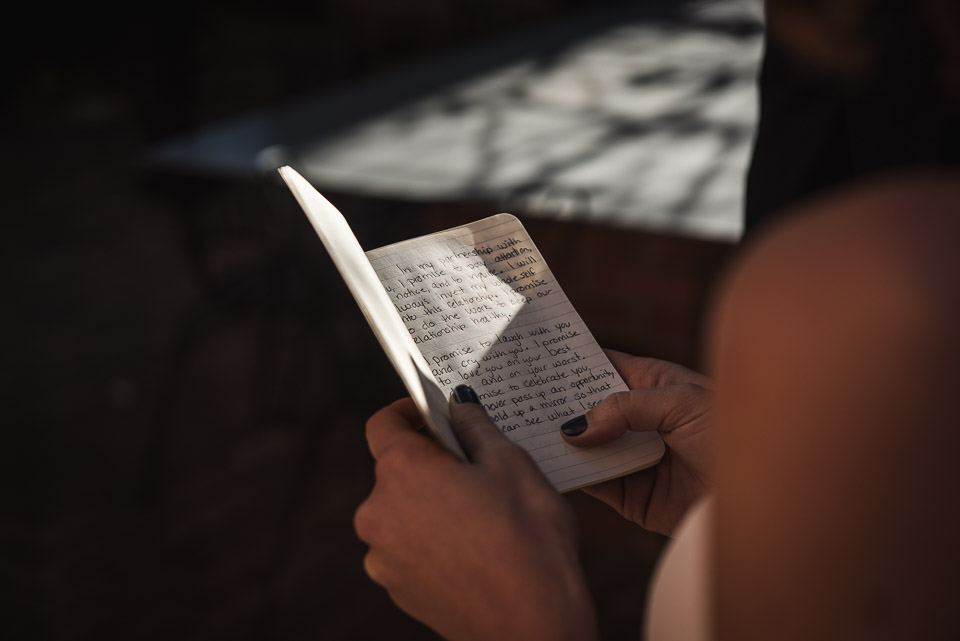 In my partnership with
I promise to pay attention,
notice, and to I will
always invest self
into this relationship. I promise
to do the work to keep our
relationship healthy.
I promise to laugh with you
and cry with you. I promise
to love you on your best
and on your worst.
promise to celebrate you,
never pass up an opportunity,
hold up a mirror so that
can see what I see